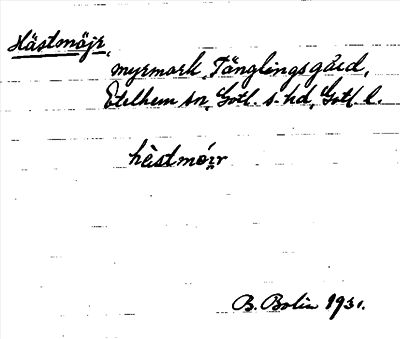 Hästmöjr,
myrmark, Tänglingsgård,
Etelhem sn, Gotl. s. hd, Gotl. l.
hèstmóịr
B. Bolin 1931.